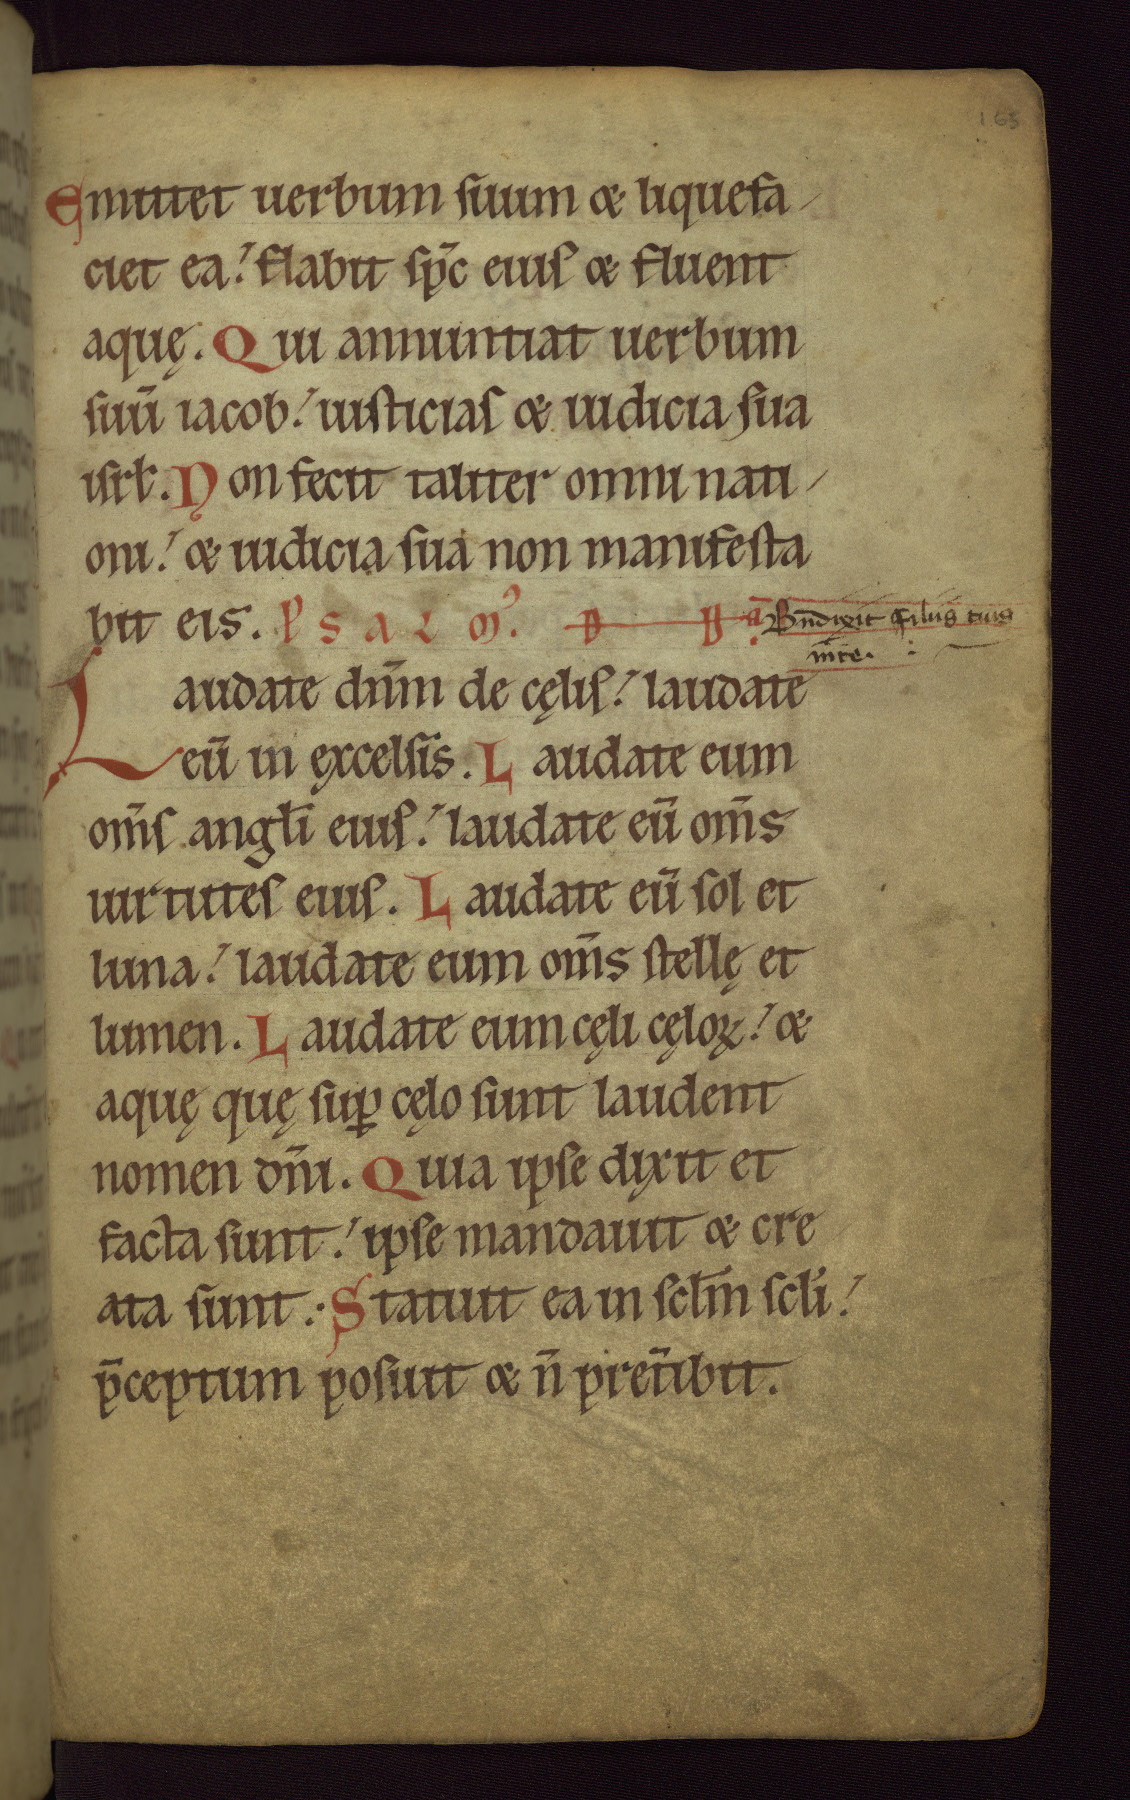 165
Emittet uerbum suum & liquefa
ciet ea! flabit sp̄c eius & fluent
aquę. Qui annuntiat uerbum
suū iacob! iusticias & iudicia sua
isrł. Non fecit taliter omni nati
oni! & iudicia sua non manifesta
bit eis. Psalm᷒.
a Bn̄dixit filiis tuis
in te.
Laudate dn̄m de cęlis! laudate
eū in excelsis. Laudate eum
om̄s angłi eius! laudate eū om̄s
uirtutes eius. Laudate eū sol et
luna! laudate eum om̄s stellę et
lumen. Laudate eum cęli cęloꝝ! &
aquę quę suꝑ cęlo sunt laudent
nomen dn̄i. Quia ipse dixit et
facta sunt! ipse mandauit & cre
ata sunt. Statuit ea in sclm̄ scli!
p̄ceptum posuit & n̄ preēibit.